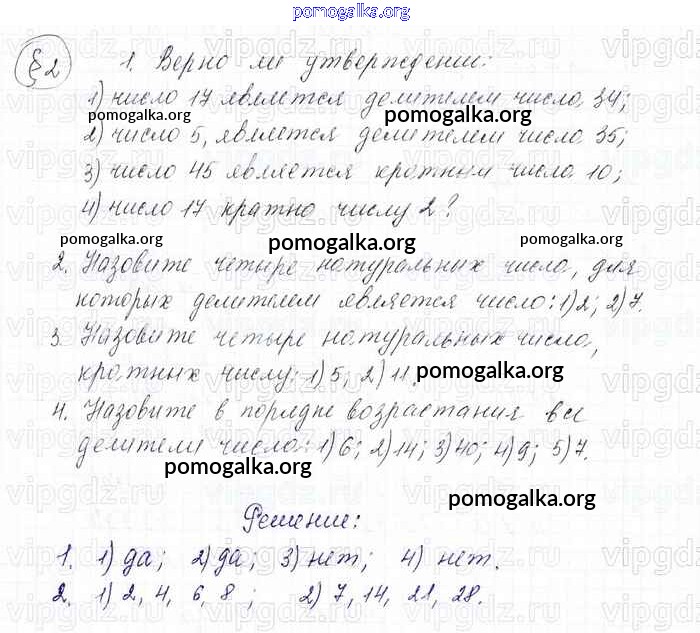 pomogalka.org
§2 1. Верно ли утверждении:
1) число 17 является делителем числа 34;
pomogalka.org pomogalka.org
2) число 5, является делителем числа 35;
3) число 45 является кратным числа 10;
4) число 17 кратно числу 2?
pomogalka.org pomogalka.org pomogalka.org
2. Назовите четыре натуральных числа, для
которых делителем является число: 1) 2; 2) 7.
3. Назовите четыре натуральных числа,
кратных числу: 1) 5; 2) 11.
pomogalka.org
4. Назовите в порядке возрастания все
делители числа: 1) 6; 2) 14; 3) 40; 4) 9; 5) 7.
pomogalka.org
pomogalka.org
Решение:
1. 1) да; 2) да; 3) нет; 4) нет.
2. 1) 2, 4, 6, 8; 2) 7, 14, 21, 28.